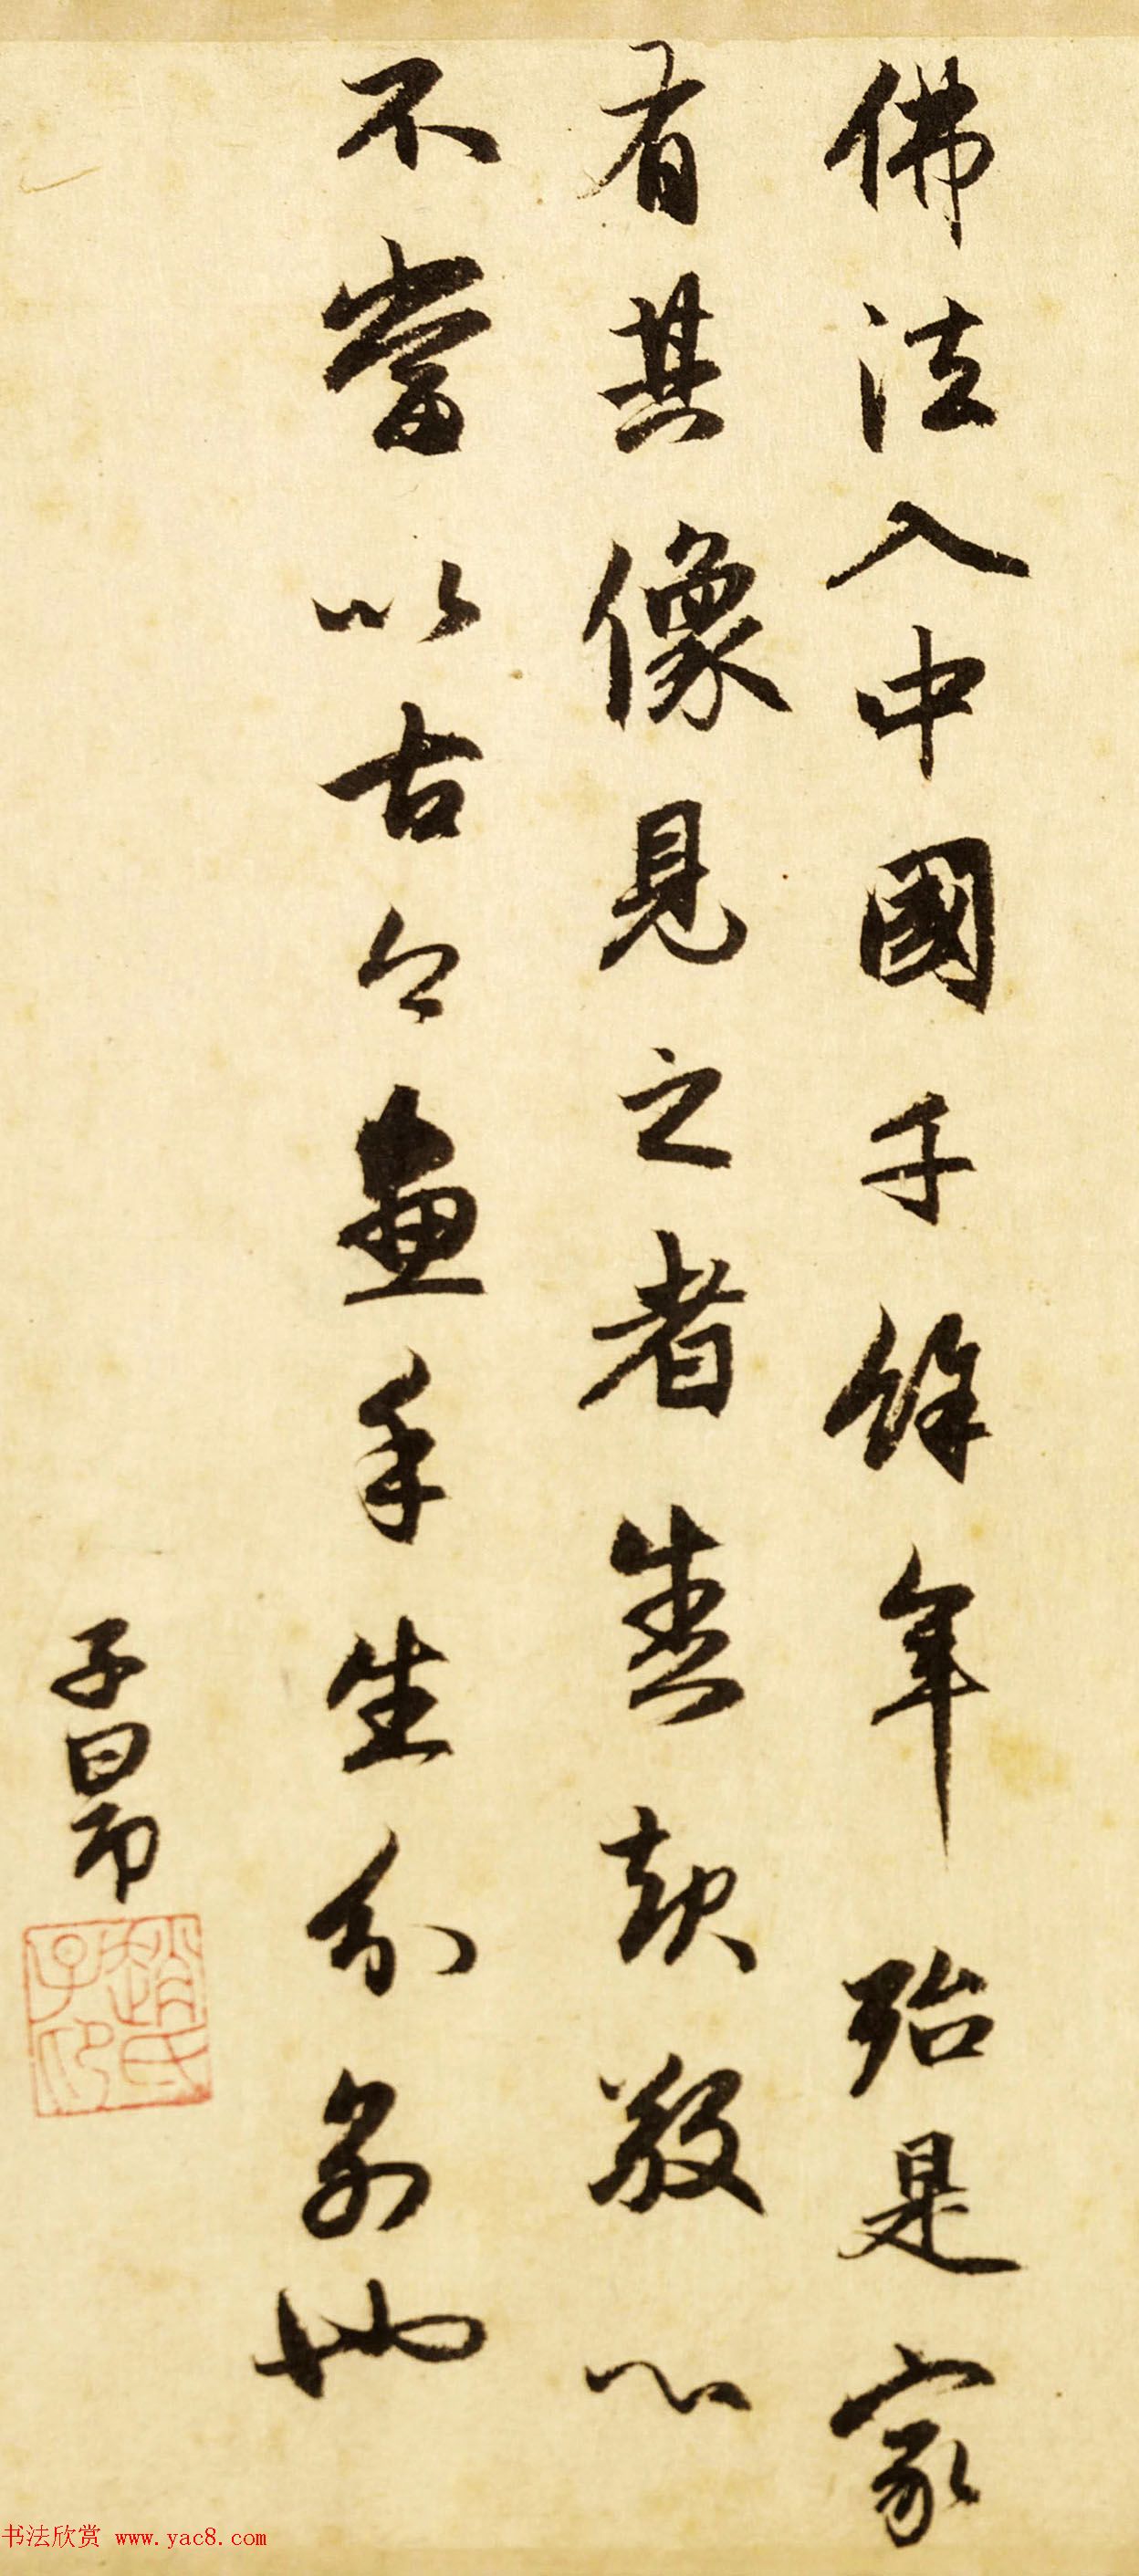 佛法入中國千餘年殆是家
有其像見之者盖起敬心
不當以古今畫手生分别也
子昂
趙氏子印
书法欣赏 www.yac8.com